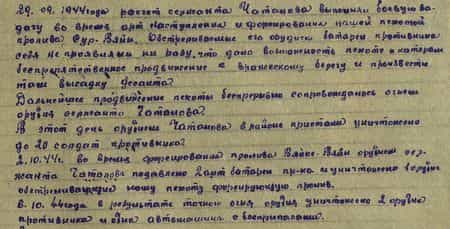 29.09.1944 года расчет сержанта Чатанова выполнял боевую за-
дачу во время арт. наступления и форсирования нашей пехотой
пролива Сур-Вяйн. Обстреливаемые его орудием батареи противника
себя не проявляли ни разу, что дало возможность пехоте и катерам
беспрепятственное продвижение к вражескому берегу и произвести
там высадку десанта.
Дальнейшее продвижение пехоты беспрерывно сопровождалось огнем
орудия сержанта Чатанова.
В этот день орудием Чатанова в районе пристани уничтожено
до 20 солдат противника.
2.10.44г. во время форсирования пролива Вяйке-Вяйн орудием сер-
жанта Чатанова подавлено 2 арт батареи пр-ка и уничтожено 1 орудие
обстреливающие нашу пехоту форсирующую пролив.
6.10.44 года в результате точного огня орудия уничтожено 2 орудия
противника и одна автомашина с боеприпасами.